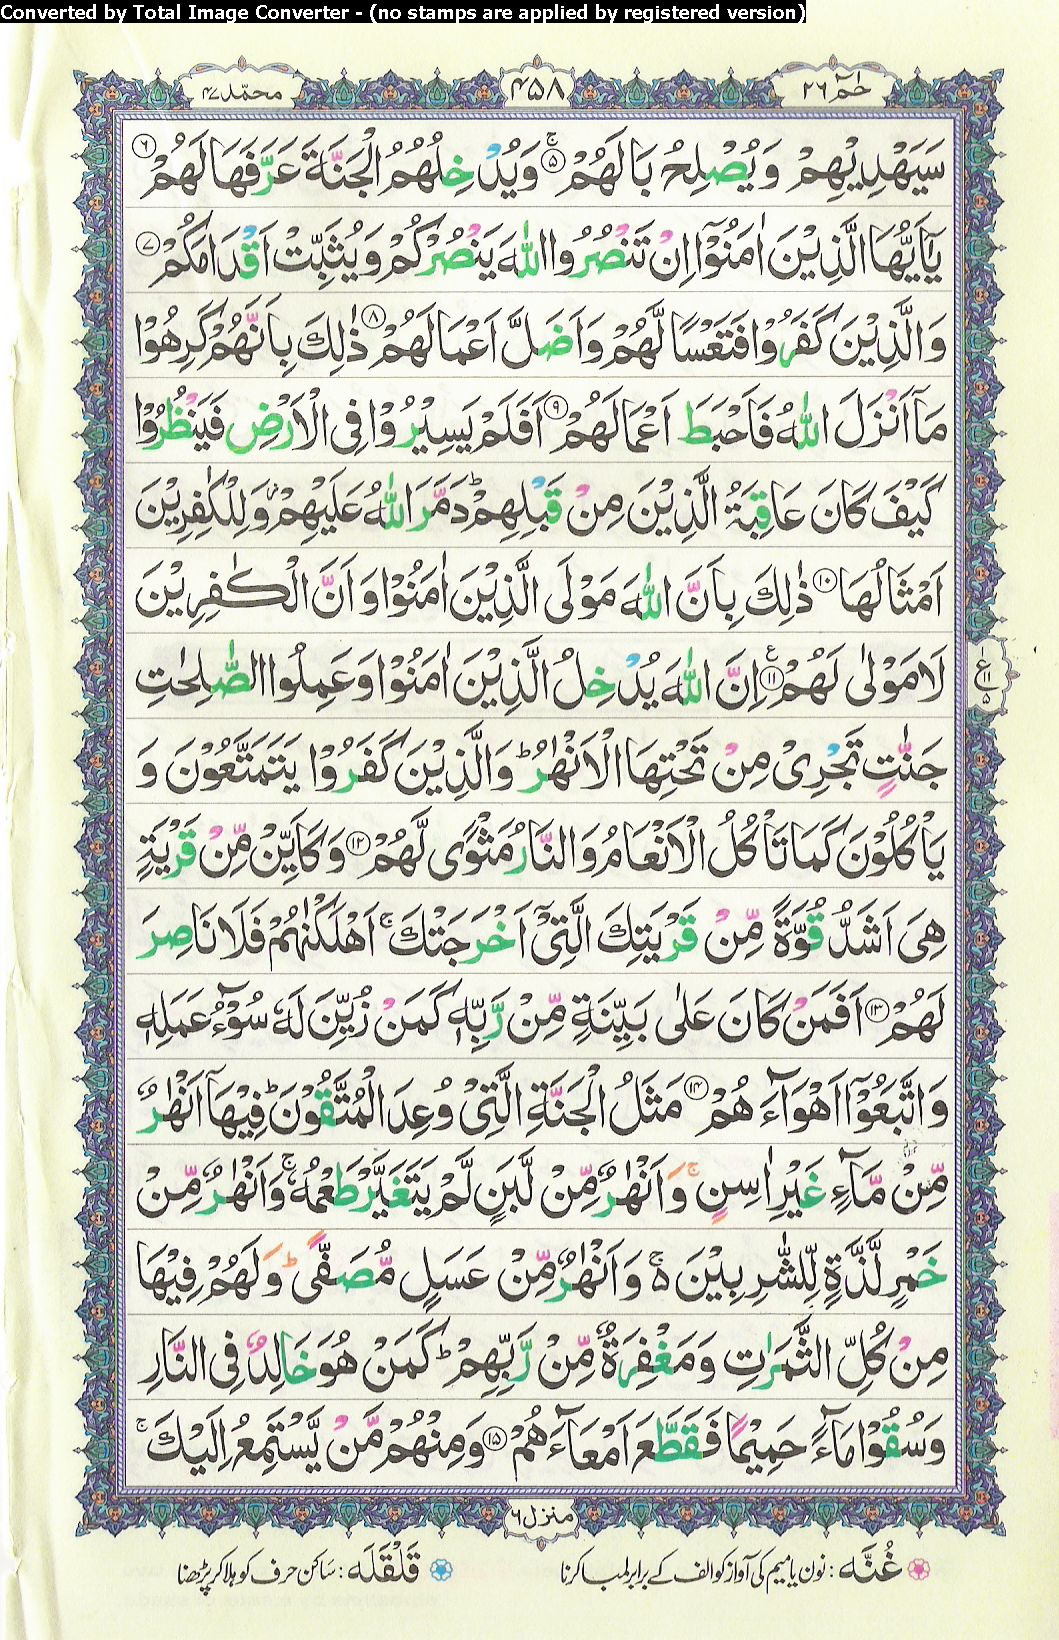 Converted by Total Image Converter - (no stamps are applied by registered version)
حٰمٓ ٢٦
۴۵۸
محمّد ۴۷
سَيَهْدِيْهِمْ وَيُصْلِحُ بَالَهُمْ ۚ‏﴿۵﴾ وَيُدْخِلُهُمُ الْجَنَّةَ عَرَّفَهَا لَهُمْ ﴿۶﴾
يٰۤاَيُّهَا الَّذِيْنَ اٰمَنُوْۤا اِنْ تَنْصُرُوا اللّٰهَ يَنْصُرْكُمْ وَيُثَبِّتْ اَقْدَامَكُمْ ﴿۷﴾
وَالَّذِيْنَ كَفَرُوْا فَتَعْسًا لَّهُمْ وَاَضَلَّ اَعْمَالَهُمْ ﴿۸﴾ ذٰلِكَ بِاَنَّهُمْ كَرِهُوْا
مَاۤ اَنْزَلَ اللّٰهُ فَاَحْبَطَ اَعْمَالَهُمْ ﴿۹﴾ اَفَلَمْ يَسِيْرُوْا فِى الْاَرْضِ فَيَنْظُرُوْا
كَيْفَ كَانَ عَاقِبَةُ الَّذِيْنَ مِنْ قَبْلِهِمْ ؕ دَمَّرَ اللّٰهُ عَلَيْهِمْ ؗ وَلِلْكٰفِرِيْنَ
اَمْثَالُهَا ﴿۱۰﴾ ذٰلِكَ بِاَنَّ اللّٰهَ مَوْلَى الَّذِيْنَ اٰمَنُوْا وَاَنَّ الْكٰفِرِيْنَ
لَا مَوْلٰى لَهُمْ ﴿۱۱﴾ اِنَّ اللّٰهَ يُدْخِلُ الَّذِيْنَ اٰمَنُوْا وَعَمِلُوا الصّٰلِحٰتِ
ع ۱۱ ۵
جَنّٰتٍ تَجْرِىْ مِنْ تَحْتِهَا الْاَنْهٰرُ ؕ وَالَّذِيْنَ كَفَرُوْا يَتَمَتَّعُوْنَ وَ
يَاْكُلُوْنَ كَمَا تَاْكُلُ الْاَنْعَامُ وَالنَّارُ مَثْوًى لَّهُمْ ﴿۱۲﴾ وَكَاَيِّنْ مِّنْ قَرْيَةٍ
هِىَ اَشَدُّ قُوَّةً مِّنْ قَرْيَتِكَ الَّتِىْۤ اَخْرَجَتْكَ ۚ اَهْلَكْنٰهُمْ فَلَا نَاصِرَ
لَهُمْ ﴿۱۳﴾ اَفَمَنْ كَانَ عَلٰى بَيِّنَةٍ مِّنْ رَّبِّهٖ كَمَنْ زُيِّنَ لَهٗ سُوْٓءُ عَمَلِهٖ
وَاتَّبَعُوْۤا اَهْوَآءَهُمْ ﴿۱۴﴾ مَثَلُ الْجَنَّةِ الَّتِىْ وُعِدَ الْمُتَّقُوْنَ ؕ فِيْهَاۤ اَنْهٰرٌ
مِّنْ مَّآءٍ غَيْرِ اٰسِنٍ ۚ وَاَنْهٰرٌ مِّنْ لَّبَنٍ لَّمْ يَتَغَيَّرْ طَعْمُهٗ ۚ وَاَنْهٰرٌ مِّنْ
خَمْرٍ لَّذَّةٍ لِّلشّٰرِبِيْنَ ۵ۚ وَاَنْهٰرٌ مِّنْ عَسَلٍ مُّصَفًّى ؕ وَلَهُمْ فِيْهَا
مِنْ كُلِّ الثَّمَرٰتِ وَمَغْفِرَةٌ مِّنْ رَّبِّهِمْ ؕ كَمَنْ هُوَ خَالِدٌ فِى النَّارِ
وَسُقُوْا مَآءً حَمِيْمًا فَقَطَّعَ اَمْعَآءَهُمْ ﴿۱۵﴾ وَمِنْهُمْ مَّنْ يَّسْتَمِعُ اِلَيْكَ ۚ
منزل ۶
غُنَّه : نون یا میم کی آواز کو الف کے برابر لمبا کرنا
قَلْقَلَه : ساکن حرف کو ہلا کر پڑھنا